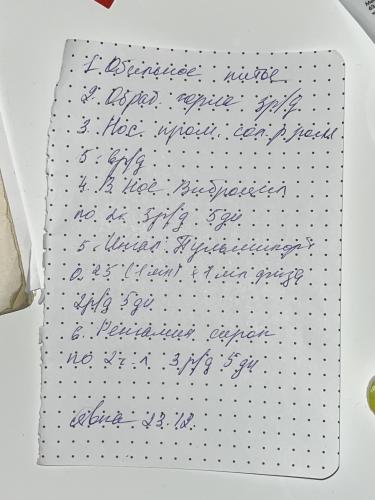 1. Обильное питье
2. Обраб. горла 3р/д
3. Нос. пром. сол. р.рами
5-6р/д
4. В нос. Виброцил
по 2к 3р/д 5дн
5. Ингал. Пульмикорт
0.25 (1мл) + 1мл физа
2р/д 5дн.
6. Ренгалин сироп
по 2 ч.л 3 р/д 5дн
явка 23.12.